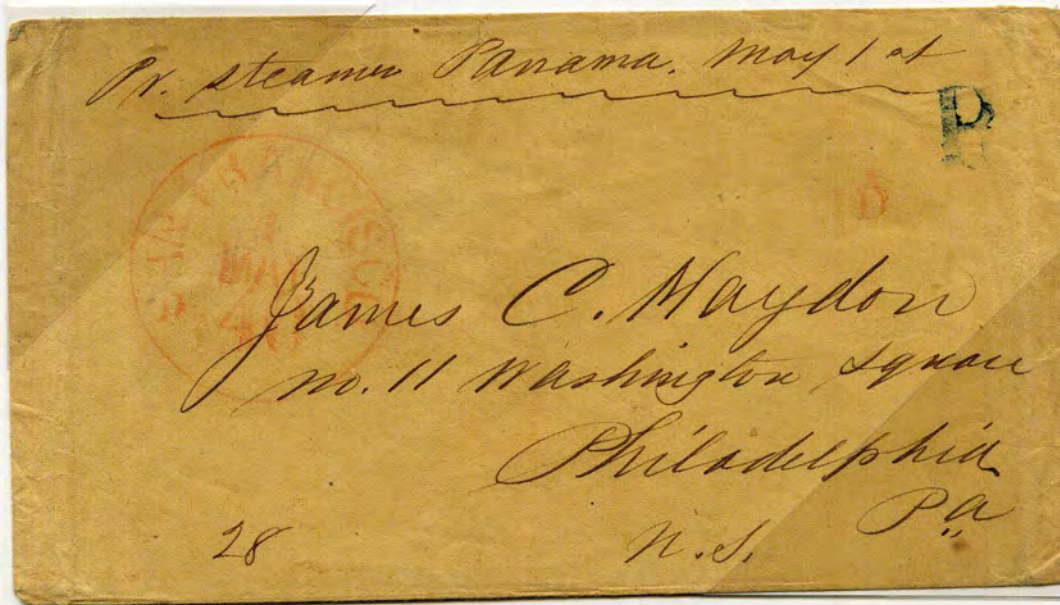 Pr. steamer Panama. May 1st
D
SAN FRANCISCO
1
MAY
D
James C. Haydon
no. 11 Washington Square
Philadelphia
Pa
28
N.S.